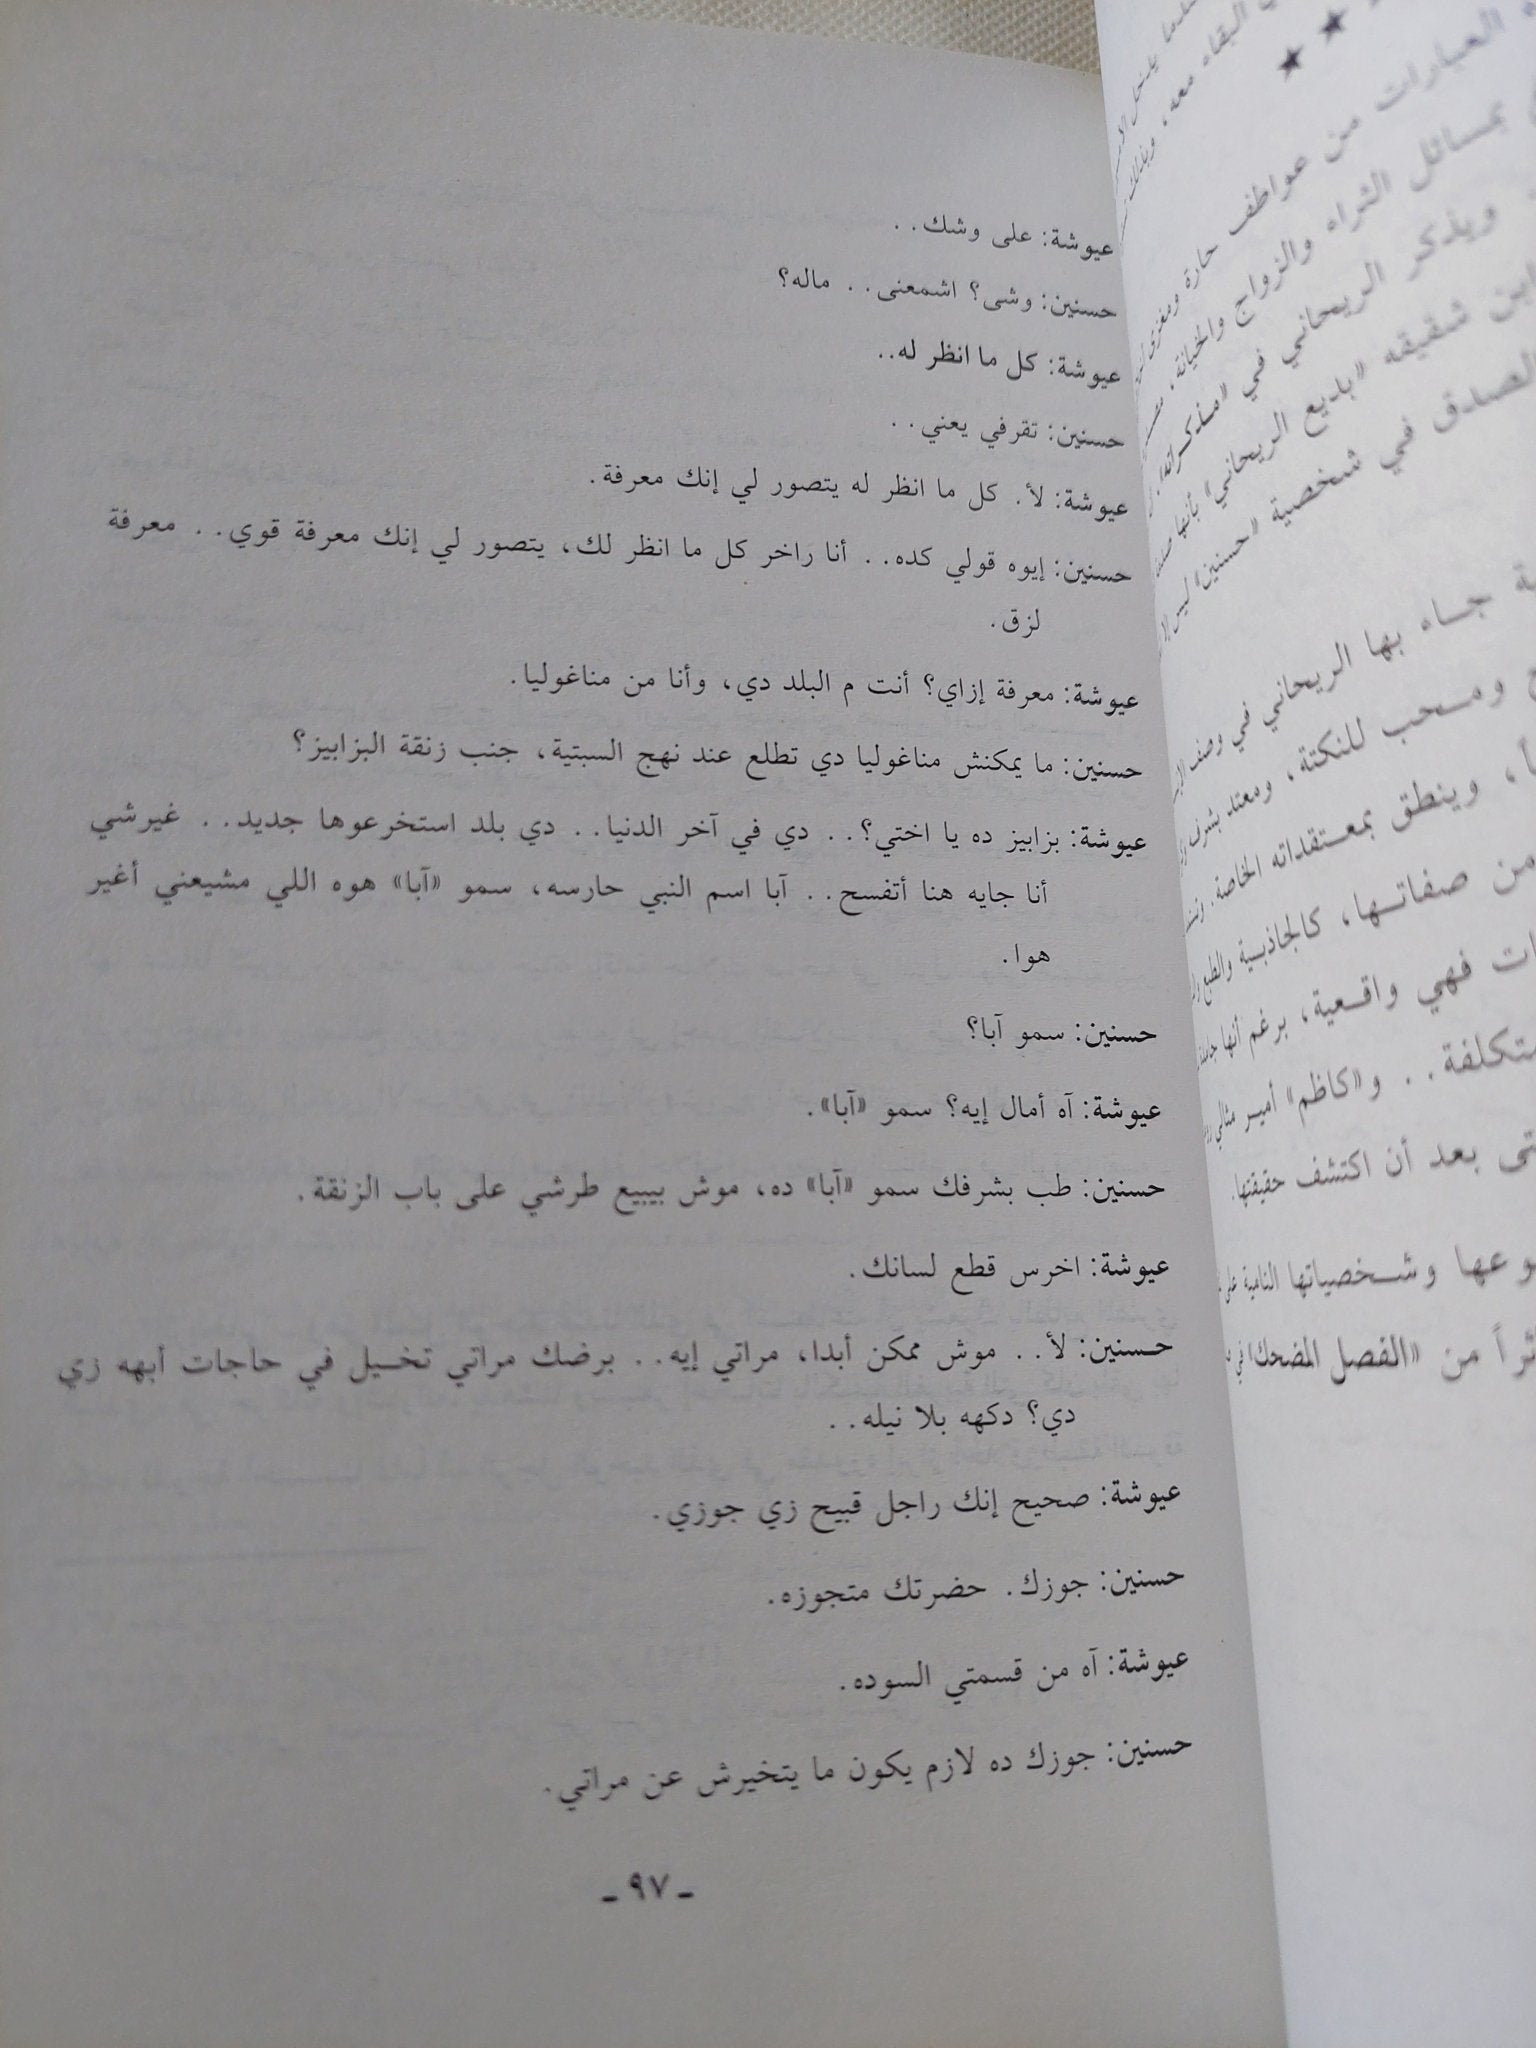 عيوشة: على وشك..
حسنين: وشى؟ اشمعنى.. ماله؟
عيوشة: كل ما انظر له..
حسنين: تقرفي يعني..
عيوشة: لأ. كل ما انظر له يتصور لي إنك معرفة.
حسنين: إيوه قولي كده.. أنا راخر كل ما انظر لك، يتصور لي إنك معرفة قوي.. معرفة
لزق.
عيوشة: معرفة إزاي؟ أنت م البلد دي، وأنا من مناغوليا.
حسنين: ما يمكنش مناغوليا دي تطلع عند نهج السبتية، جنب زنقة البزابيز؟
عيوشة: بزابيز ده يا اختي؟.. دي في آخر الدنيا.. دي بلد استخرعوها جديد.. غيرشي
أنا جايه هنا أتفسح.. آبا اسم النبي حارسه، سمو «آبا» هوه اللي مشيعني أغير
هوا.
حسنين: سمو آبا؟
عيوشة: آه أمال إيه؟ سمو «آبا».
حسنين: طب بشرفك سمو «آبا» ده، موش بيبيع طرشي على باب الزنقة.
عيوشة: اخرس قطع لسانك.
حسنين: لأ.. موش ممكن أبدا، مراتي إيه.. برضك مراتي تخيل في حاجات أبهه زي
دي؟ دكهه بلا نيله..
عيوشة: صحيح إنك راجل قبيح زي جوزي.
حسنين: جوزك. حضرتك متجوزه.
عيوشة: آه من قسمتي السوده.
حسنين: جوزك ده لازم يكون ما يتخيرش عن مراتي.
- ٩٧ -
البقاء معه،
العبارات من عواطف حارة ومغزى
بمسائل الثراء والزواج والخيانة،
ويذكر الريحاني في «مذكراته»
ابن شقيقه «بديع الريحاني» بأنها
الصدق في شخصية «حسنين» ليس
جاء بها الريحاني في وصف
ومحب للنكتة، ومعتد بشرف
وينطق بمعتقداته الخاصة.
من صفاتها، كالجاذبية والطبع
فهي واقعية، برغم أنها
متكلفة.. و«كاظم» أمير مثالي
بعد أن اكتشف حقيقتها.
وشخصياتها النامية على
من «الفصل المضحك» في